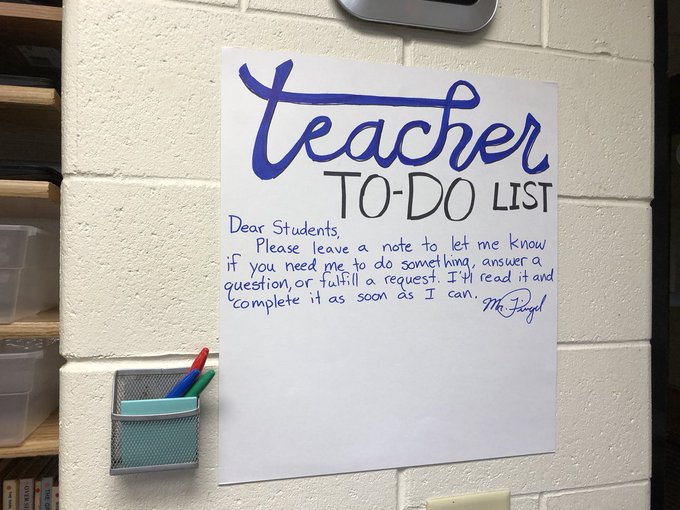 Teacher
TO-DO LIST
Dear Students,
Please leave a note to let me know
if you need me to do something, answer a
question, or fulfill a request. I'll read it and
complete it as soon as I can.
Mr. Pingel